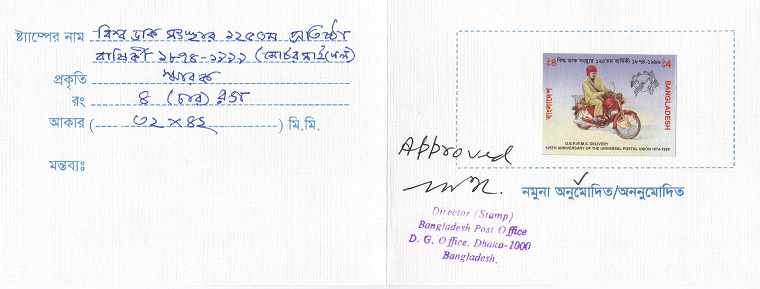 ষ্ট্যাম্পের নাম বিশ্ব ডাক সংস্থার ১২৫তম প্রতিষ্ঠা
বার্ষিকী ১৮৭৪-১৯৯৯ (মোটর সাইকেল)
প্রকৃতি স্মারক
রং ৪ (চার) রঙা
আকার (--- ৩২ X ৪২ ---) মি.মি.
মন্তব্যঃ
৳4 বিশ্ব ডাক সংস্থার ১২৫তম বার্ষিকী ১৮৭৪-১৯৯৯ ৳4
বাংলাদেশ
BANGLADESH
G.E.P./E.M.S. DELIVERY
125TH ANNIVERSARY OF THE UNIVERSAL POSTAL UNION 1874-1999
Approved
নমুনা অনুমোদিত/অননুমোদিত
Director (Stamp)
Bangladesh Post Office
D. G. Office, Dhaka-1000
Bangladesh.